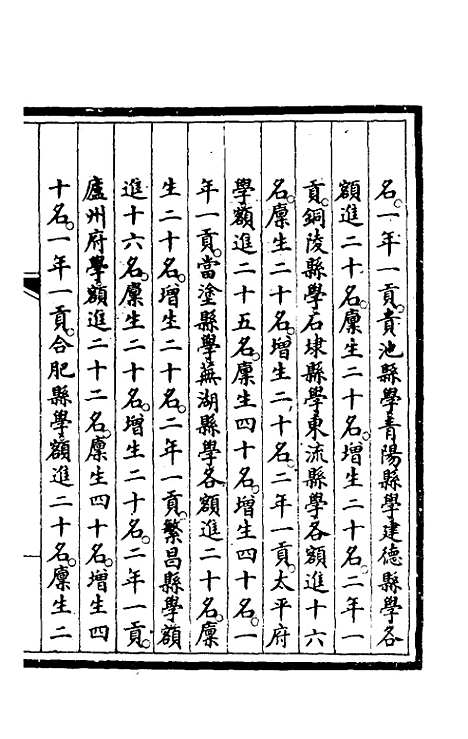 名。一年一貢。貴池縣學青陽縣學建德縣學各
額進二十名。廩生二十名。增生二十名。二年一
貢。銅陵縣學石埭縣學東流縣學各額進十六
名。廩生二十名。增生二十名。二年一貢。太平府
學額進二十五名。廩生四十名。增生四十名。一
年一貢。當塗縣學蕪湖縣學各額進二十名。廩
生二十名。增生二十名。二年一貢。繁昌縣學額
進十六名。廩生二十名。增生二十名。二年一貢。
廬州府學額進二十二名。廩生四十名。增生四
十名。一年一貢。合肥縣學額進二十名。廩生二